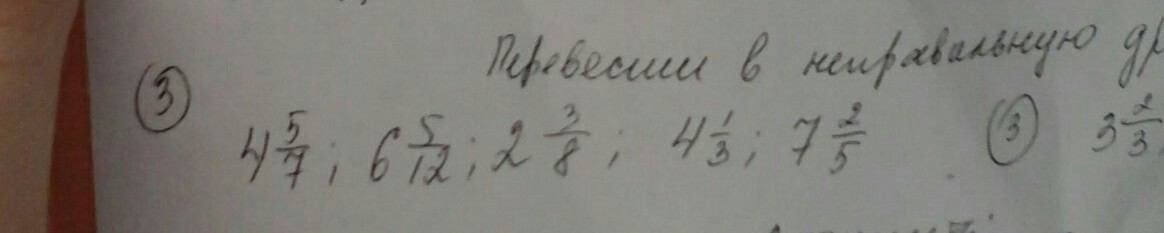 Перевести в неправильную др
③ 4 5/7 ; 6 5/12 ; 2 3/8 ; 4 1/3 ; 7 2/5 ③ 3 2/3